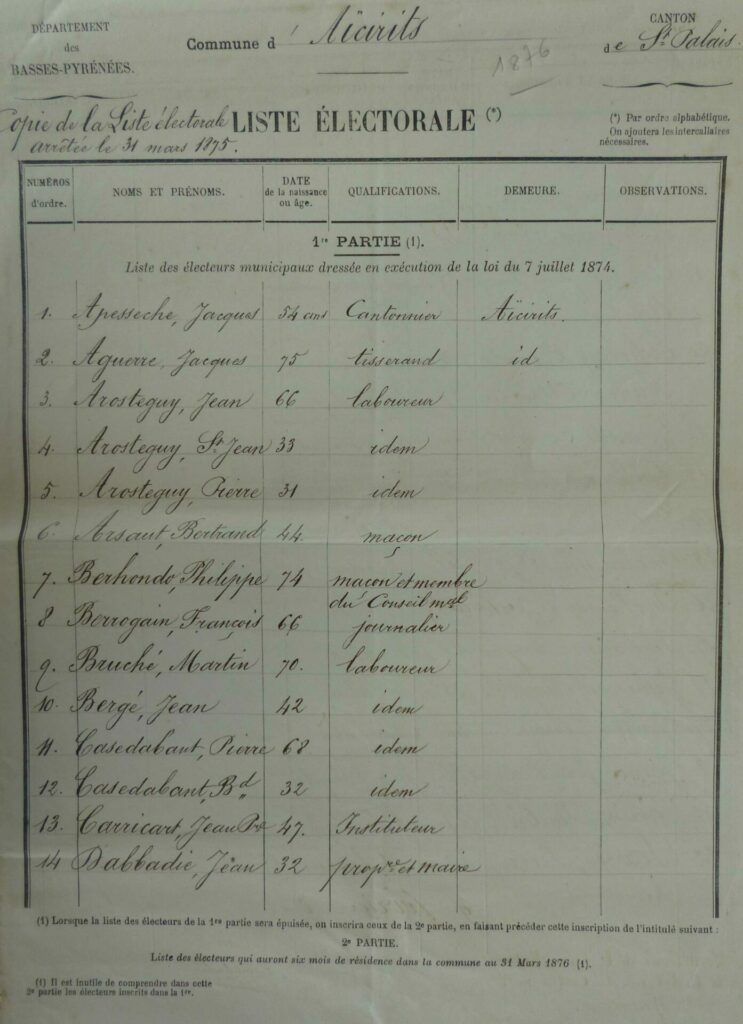 DÉPARTEMENT
des
BASSES-PYRÉNÉES.
Commune d'Aïcirits
1876
CANTON
de St Palais.
Copie de la Liste électorale
arrêtée le 31 mars 1875.
LISTE ÉLECTORALE (*)
(*) Par ordre alphabétique.
On ajoutera les intercallaires
nécessaires.
NUMÉROS d'ordre. NOMS ET PRÉNOMS. DATE de la naissance ou âge. QUALIFICATIONS. DEMEURE. OBSERVATIONS.
1re PARTIE (1).
Liste des électeurs municipaux dressée en exécution de la loi du 7 juillet 1874.
1. Apesseche, Jacques 54 ans Cantonnier Aïcirits.
2. Aguerre, Jacques 75 tisserand id
3. Arosteguy, Jean 66 laboureur
4. Arosteguy, St Jean 33 idem
5. Arosteguy, Pierre 31 idem
6. Arsaut, Bertrand 44 maçon
7. Berhondo, Philippe 74 maçon et membre
du Conseil mpal
8 Berrogain, François 66 journalier
9. Bruché, Martin 70. laboureur
10. Bergé, Jean 42 idem
11. Casedabant, Pierre 68 idem
12. Casedabant, Bd 32 idem
13. Carricart, Jean Pre 47. Instituteur
14 Dabbadie, Jean 32 propre et maire
(1) Lorsque la liste des électeurs de la 1re partie sera épuisée, on inscrira ceux de la 2e partie, en faisant précéder cette inscription de l'intitulé suivant :
2e PARTIE.
Liste des électeurs qui auront six mois de résidence dans la commune au 31 Mars 1876 (1).
(1) Il est inutile de comprendre dans cette
2e partie les électeurs inscrits dans la 1re.